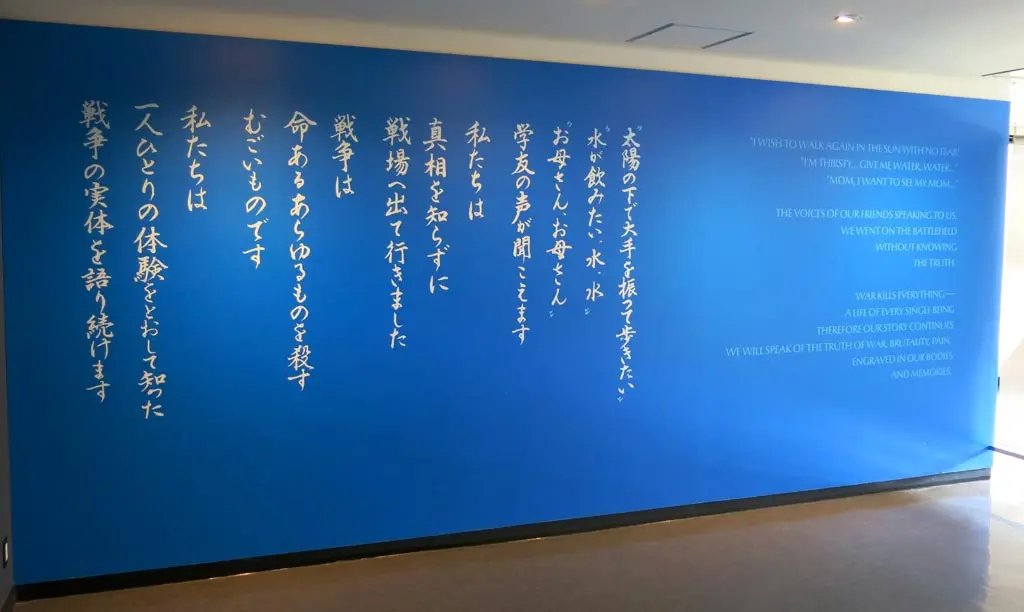 〝太陽の下で大手を振って歩きたい〟
〝水が飲みたい、水、水〟
〝お母さん、お母さん〟
学友の声が聞こえます
私たちは
真相を知らずに
戦場へ出て行きました
戦争は
命あるあらゆるものを殺す
むごいものです
私たちは
一人ひとりの体験をとおして知った
戦争の実体を語り続けます
"I WISH TO WALK AGAIN IN THE SUN WITH NO FEAR"
"I'M THIRSTY... GIVE ME WATER, WATER..."
"MOM, I WANT TO SEE MY MOM..."
THE VOICES OF OUR FRIENDS SPEAKING TO US.
WE WENT ON THE BATTLEFIELD
WITHOUT KNOWING
THE TRUTH.
WAR KILLS EVERYTHING—
A LIFE OF EVERY SINGLE BEING
THEREFORE OUR STORY CONTINUES
WE WILL SPEAK OF THE TRUTH OF WAR, BRUTALITY, PAIN,
ENGRAVED IN OUR BODIES
AND MEMORIES.